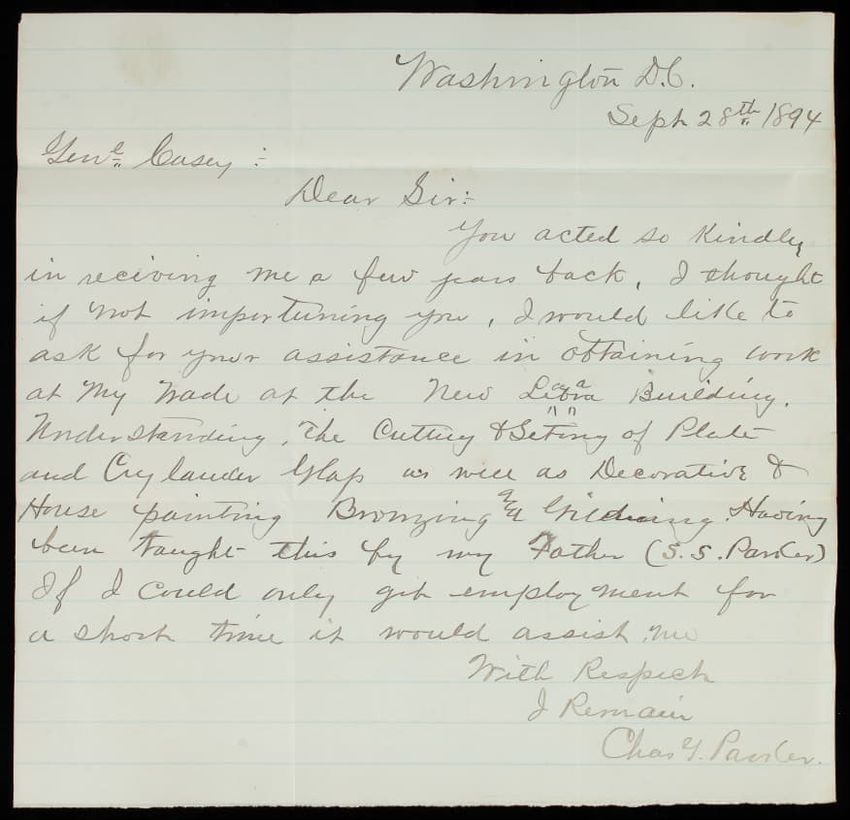 Washington D.C.
Sept 28th 1894
Genl Casey :-
Dear Sir:-
You acted so kindly
in reciving me a few years back, I thought
if not importuning you, I would like to
ask for your assistance in obtaining work
at my trade at the New Building.
Understanding, The Cutting & Seting of Plate
and Crylander Glass as well as Decorative &
House painting Bronzing & Gildening. Having
been taught this by my Father (S. S. Parker)
If I could only get employment for
a short time it would assist me
With Respect
I Remain
Chas Y. Parker.